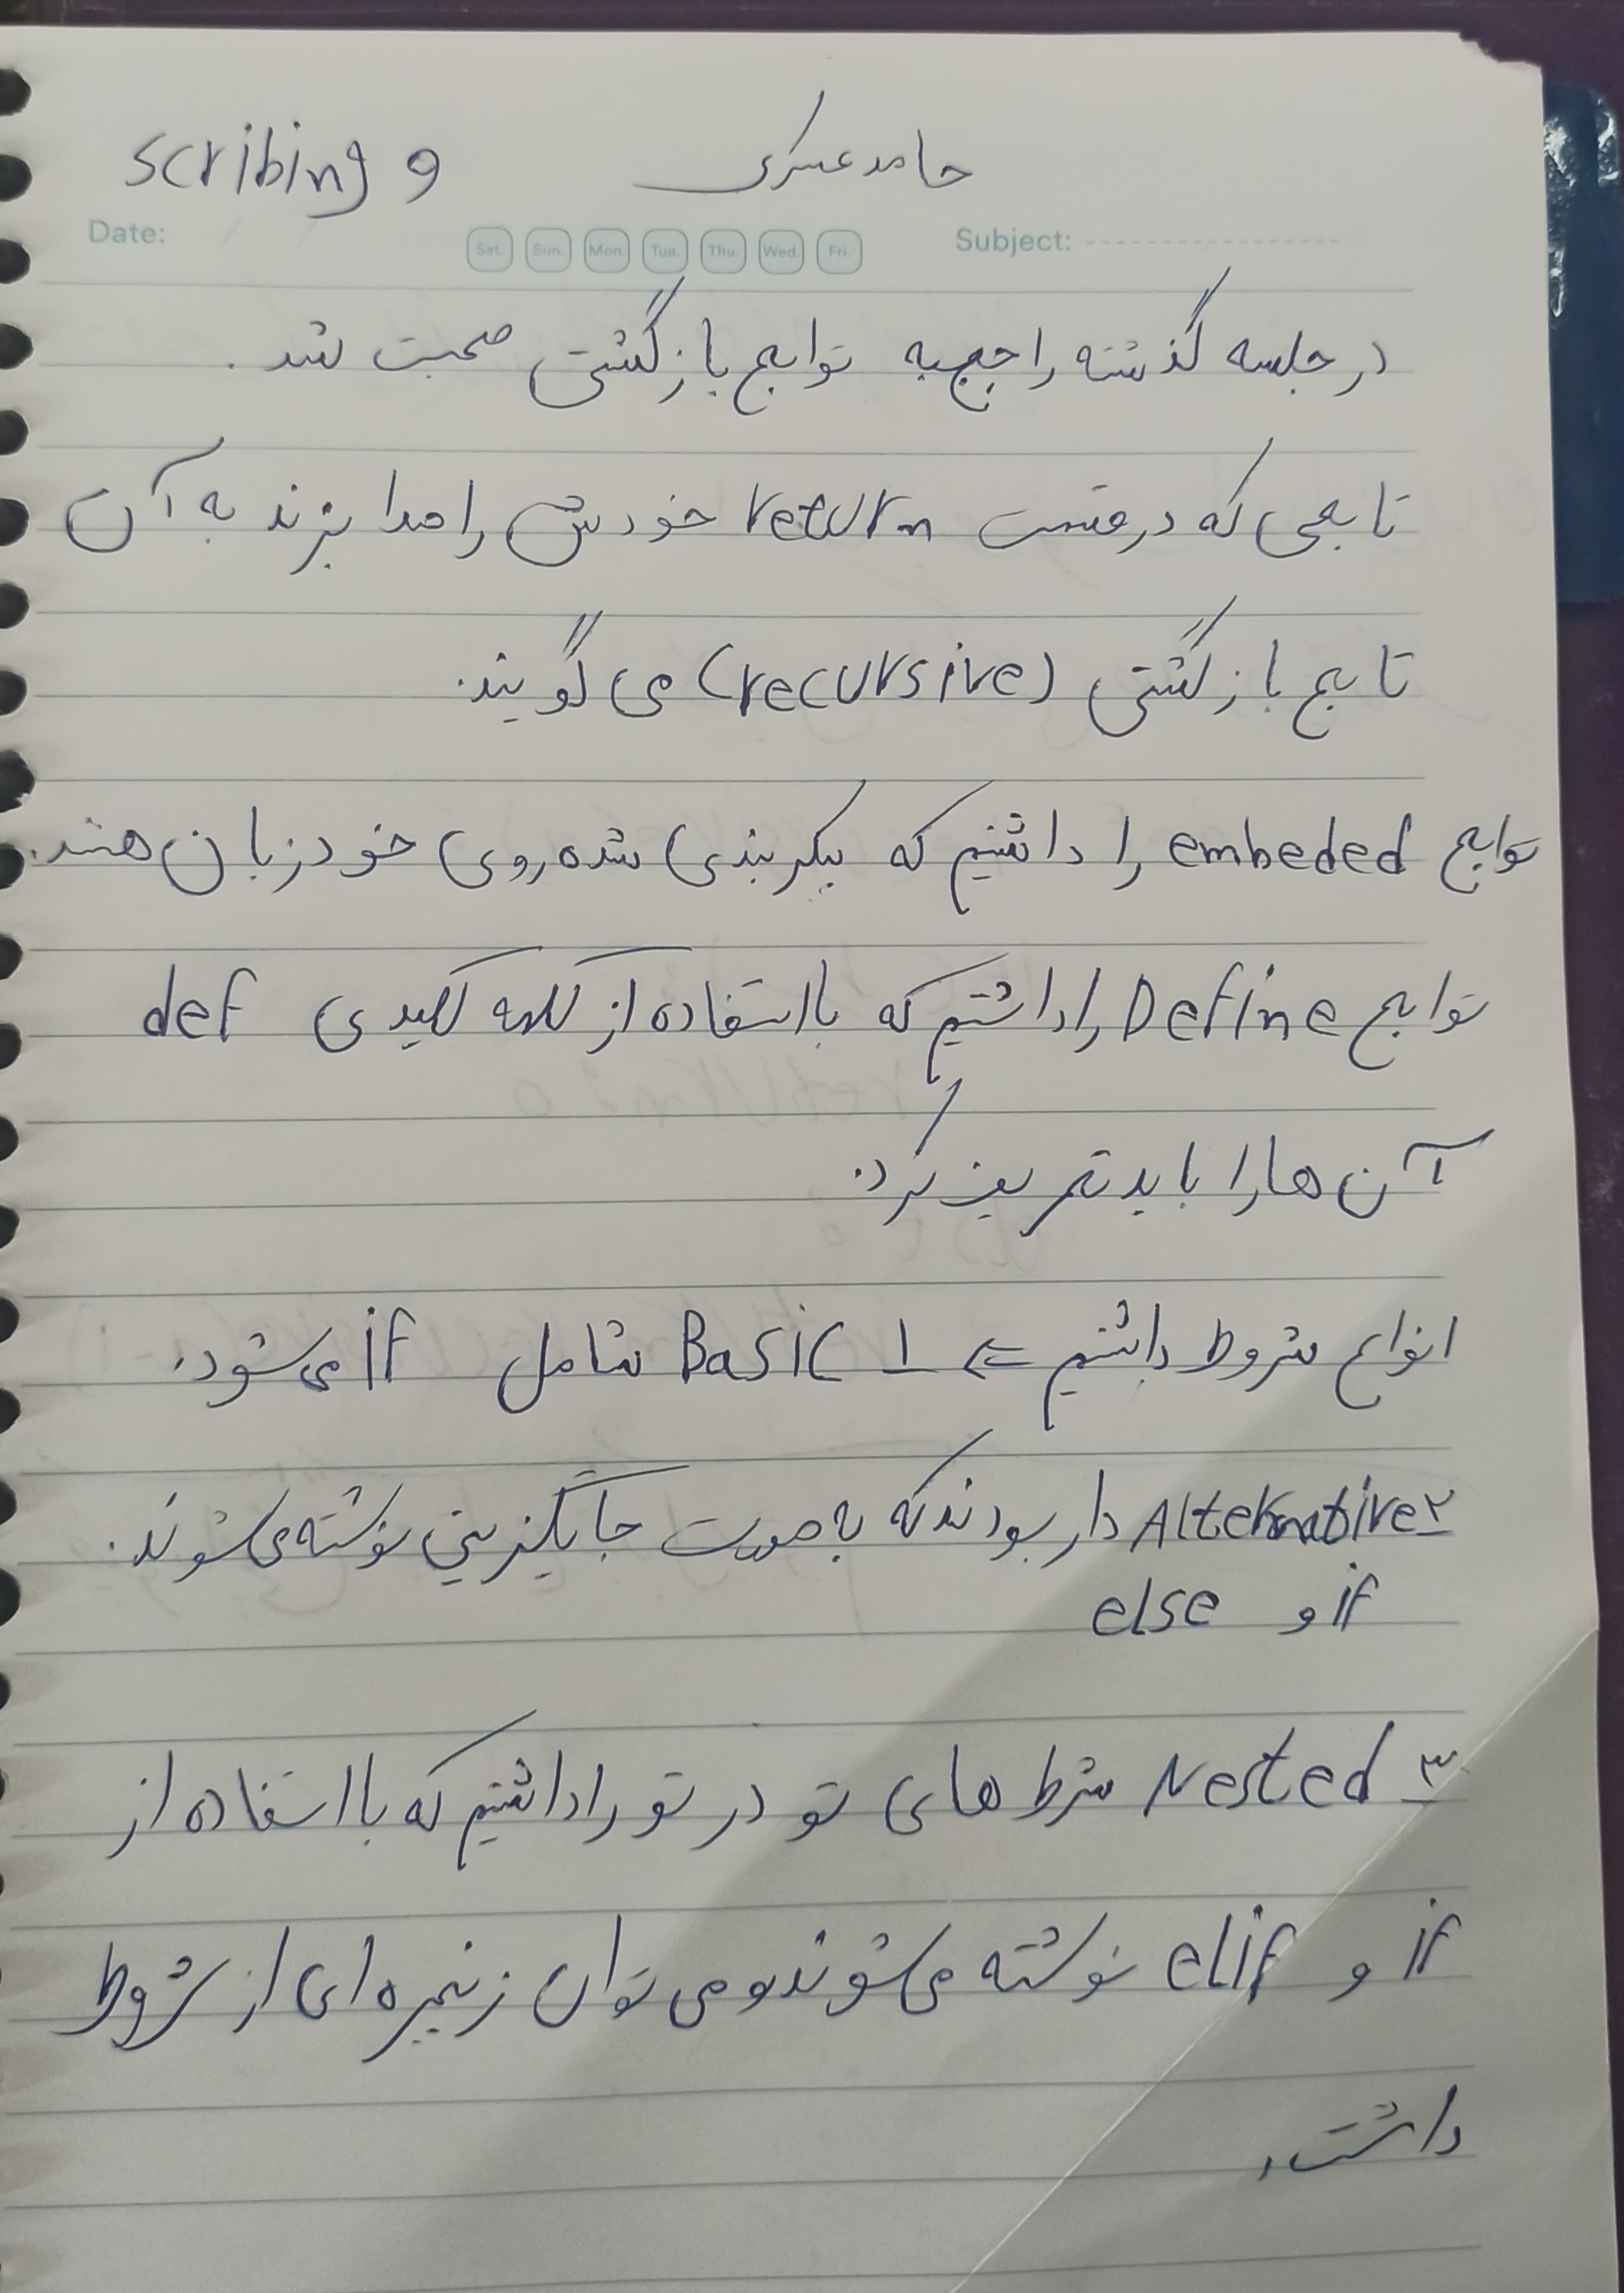 حامد عسکری scribing 9
Date: Sat. Sun. Mon. Tue. Thu. Wed. Fri. Subject:
در جلسه گذشته راجع به توابع بازگشتی صحبت شد.
تابعی که در قسمت return خودش را صدا بزند به آن
تابع بازگشتی (recursive) می گویند.
توابع embeded را داشتیم که پیکربندی شده روی خود زبان هستند.
توابع Define را داشتیم که با استفاده از کلمه کلیدی def
آن ها را باید تعریف کرد.
انواع شروط داشتیم ⇐ ۱ Basic شامل if می شود.
۲ Alternative دار بودند که به صورت جایگزینی نوشته می شوند.
if و else
۳ Nested شرط های تو در تو را داشتیم که با استفاده از
if و elif نوشته می شوند و می توان زنجیره ای از شروط
داشت.